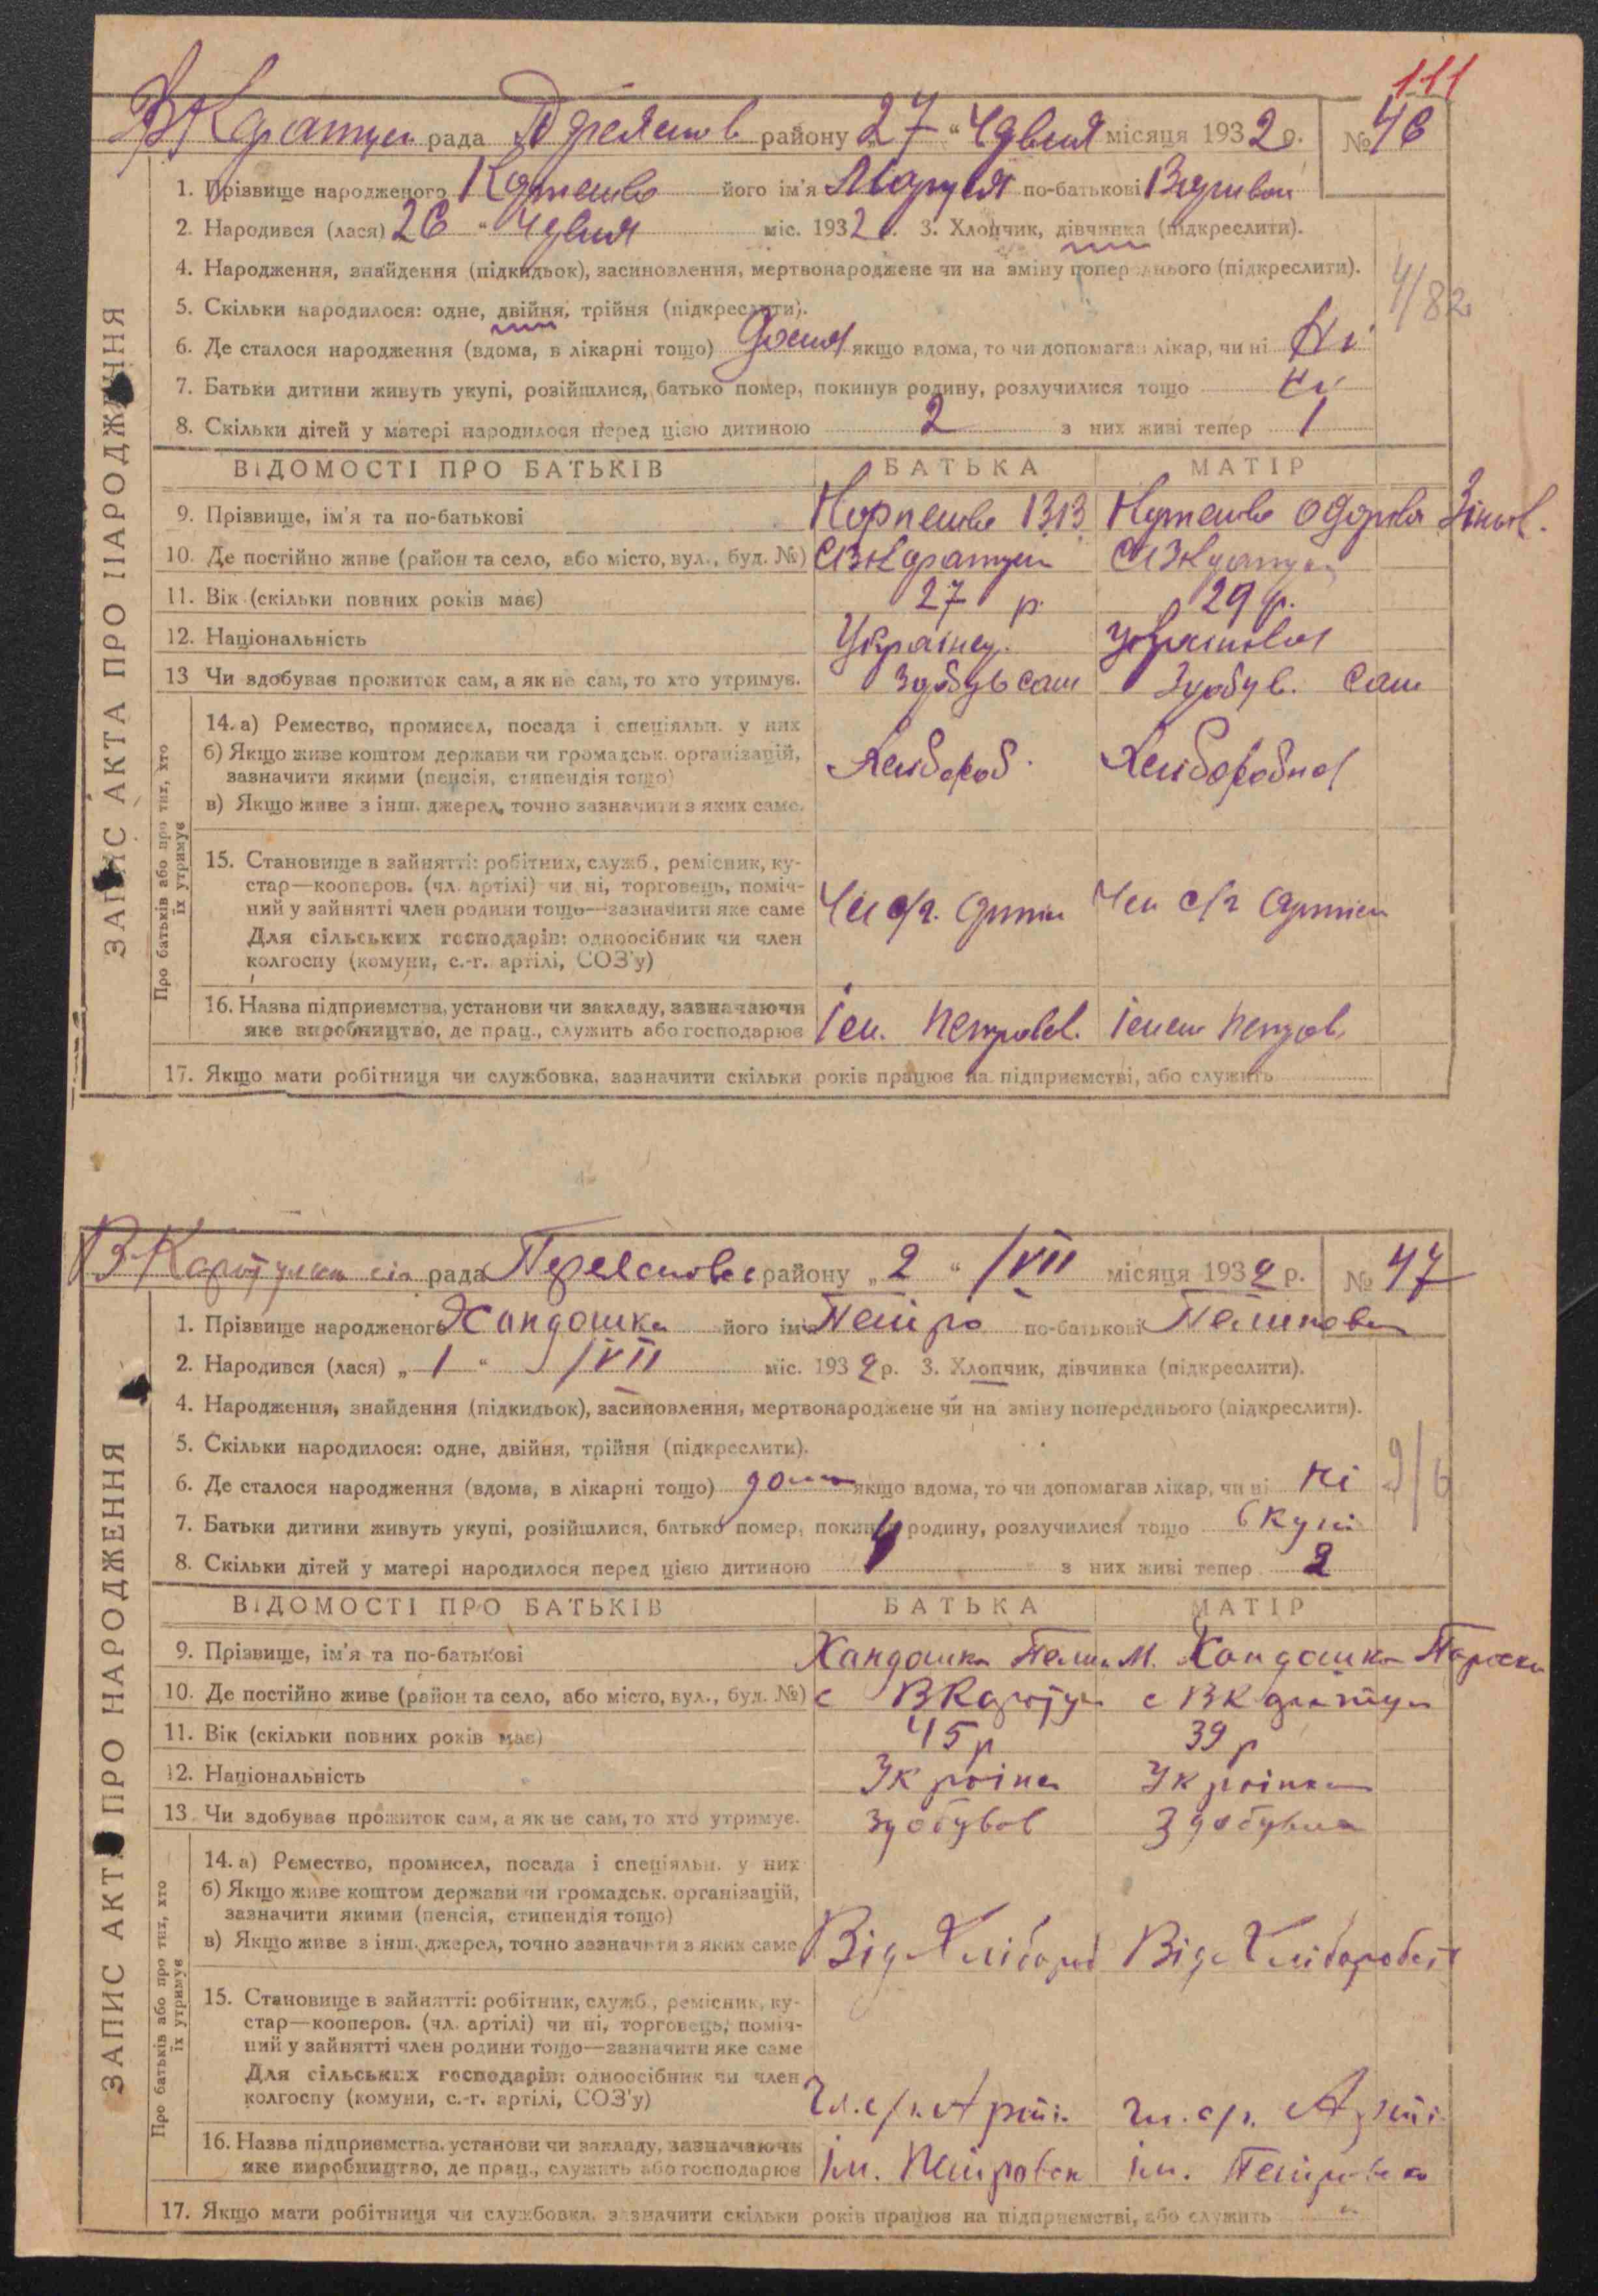 111
В Каратули рада Переяслов району „27“ Червня місяця 1932 р. № 46
ЗАПИС АКТА ПРО НАРОДЖЕННЯ
1. Прізвище народженого його ім'я Маруся по-батькові
2. Народився (лася) 26 “ Червня міс. 1932 р. 3. Хлопчик, дівчинка (підкреслити).
4. Народження, знайдення (підкидьок), засиновлення, мертвонароджене чи на зміну попереднього (підкреслити).
4/82
5. Скільки народилося: одне, двійня, трійня (підкреслити).
6. Де сталося народження (вдома, в лікарні тощо) дома якщо вдома, то чи допомагав лікар, чи ні Ні
7. Батьки дитини живуть укупі, розійшлися, батько помер, покинув родину, розлучилися тощо Ні
8. Скільки дітей у матері народилося перед цією дитиною 2 з них живі тепер 1
ВІДОМОСТІ ПРО БАТЬКІВ БАТЬКА МАТІР
9. Прізвище, ім'я та по-батькові
10. Де постійно живе (район та село, або місто, вул., буд. №) С В Каратули С В Каратули
11. Вік (скільки повних років має) 27 р. 29 р.
12. Національність Українец. Українка
13 Чи здобуває прожиток сам, а як не сам, то хто утримує. Здобув сам Здобув. сам
Про батьків або про тих, хто їх утримує
14. а) Ремество, промисел, посада і спеціяльн. у них
б) Якщо живе коштом держави чи громадськ. організацій,
зазначити якими (пенсія, стипендія тощо) Хлібороб. Хліборобка
в) Якщо живе з інш. джерел, точно зазначити з яких саме.
15. Становище в зайнятті: робітник, служб., ремісник, ку-
стар—кооперов. (чл. артілі) чи ні, торговець, поміч-
ний у зайнятті член родини тощо—зазначити яке саме Чл с/г. Артіли Член с/г Артіли
Для сільських господарів: одноосібник чи член
колгоспу (комуни, с.-г. артілі, СОЗ'у)
16. Назва підприємства, установи чи закладу, зазначаючи
яке виробництво, де прац., служить або господарює Ім. Петровсь. Імени Петров.
17. Якщо мати робітниця чи службовка, зазначити скільки років працює на підприємстві, або служить
В-Каратульська сіл рада Переяславс району „2“ /VII місяця 1932 р. № 47
ЗАПИС АКТА ПРО НАРОДЖЕННЯ
1. Прізвище народженого Хандошка його ім'я Петро по-батькові
2. Народився (лася) „1“ /VII міс. 1932 р. 3. Хлопчик, дівчинка (підкреслити).
4. Народження, знайдення (підкидьок), засиновлення, мертвонароджене чи на зміну попереднього (підкреслити).
5. Скільки народилося: одне, двійня, трійня (підкреслити).
6. Де сталося народження (вдома, в лікарні тощо) дома якщо вдома, то чи допомагав лікар, чи ні Ні
9/6
7. Батьки дитини живуть укупі, розійшлися, батько помер, покинув родину, розлучилися тощо вкупі
8. Скільки дітей у матері народилося перед цією дитиною 4 з них живі тепер 2
ВІДОМОСТІ ПРО БАТЬКІВ БАТЬКА МАТІР
9. Прізвище, ім'я та по-батькові Хандошка М. Хандошка Параска
10. Де постійно живе (район та село, або місто, вул., буд. №) с В Каратули с В Каратули
11. Вік (скільки повних років має) 45 р 39 р
12. Національність Україне Українка
13. Чи здобуває прожиток сам, а як не сам, то хто утримує. здобував Здобувала
Про батьків або про тих, хто їх утримує
14. а) Ремество, промисел, посада і спеціяльн. у них
б) Якщо живе коштом держави чи громадськ. організацій,
зазначити якими (пенсія, стипендія тощо)
в) Якщо живе з інш. джерел, точно зазначити з яких саме Від Хлібороб Від Хліборобст
15. Становище в зайнятті: робітник, служб., ремісник, ку-
стар—кооперов. (чл. артілі) чи ні, торговець, поміч-
ний у зайнятті член родини тощо—зазначити яке саме
Для сільських господарів: одноосібник чи член
колгоспу (комуни, с.-г. артілі, СОЗ'у) Чл. с/г. Артіл. чл. с/г. Артіл.
16. Назва підприємства, установи чи закладу, зазначаючи
яке виробництво, де прац., служить або господарює Ім. Петровск Ім. Петровсь
17. Якщо мати робітниця чи службовка, зазначити скільки років працює на підприємстві, або служить „